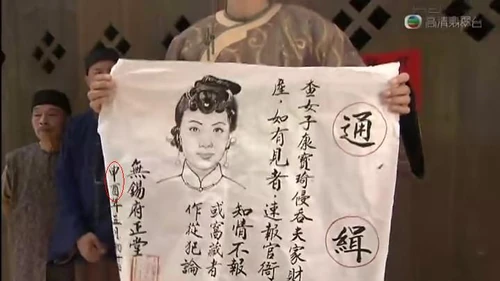 高清翡翠台
通緝
查女子康寶琦侵吞夫家財
產．如有見者．速報官衙
知情不報
或窩藏者
作從犯論
無錫府正堂
甲酉年三月